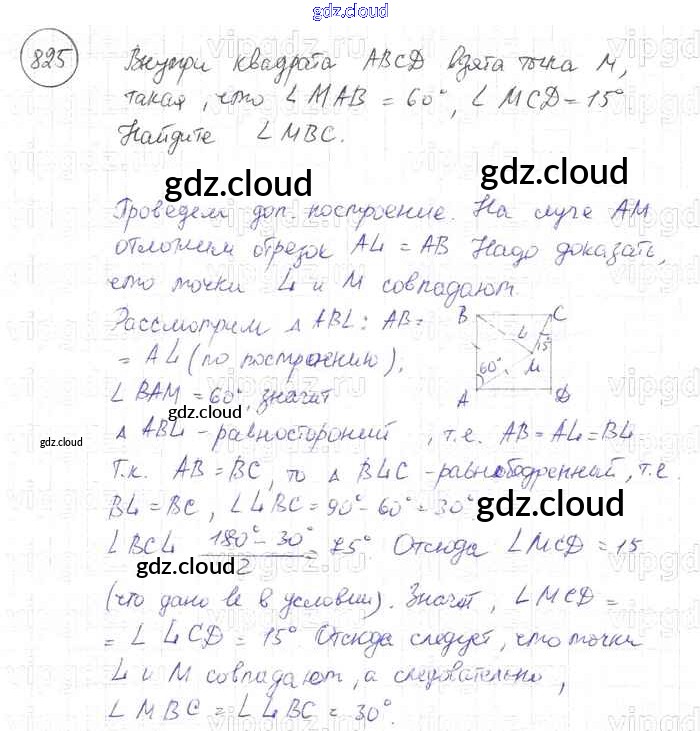 gdz.cloud
825 Внутри квадрата ABCD взята точка М,
такая, что ∠ MAB = 60°, ∠ MCD = 15°
Найдите ∠ MBC.
gdz.cloud
gdz.cloud
Проведем доп. построение. На луче AM
отложим отрезок AL = AB Надо доказать,
что точки L и М совпадают.
Рассмотрим △ ABL: AB =
= AL (по построению),
∠ BAM = 60°, значит
B C L 15° 60° M A D
gdz.cloud
gdz.cloud
△ ABL - равносторонний, т.е. AB = AL = BL
Т.к. AB = BC, то △ BLC - равнобедренный, т.е.
BL = BC, ∠ LBC = 90° - 60° = 30°
gdz.cloud
∠ BCL 180° - 30° / 2 = 75° Отсюда ∠ MCD = 15
gdz.cloud
(что дано и в условии). Значит, ∠ MCD =
= ∠ LCD = 15° Отсюда следует, что точки
L и М совпадают, а следовательно,
∠ MBC = ∠ LBC = 30°.